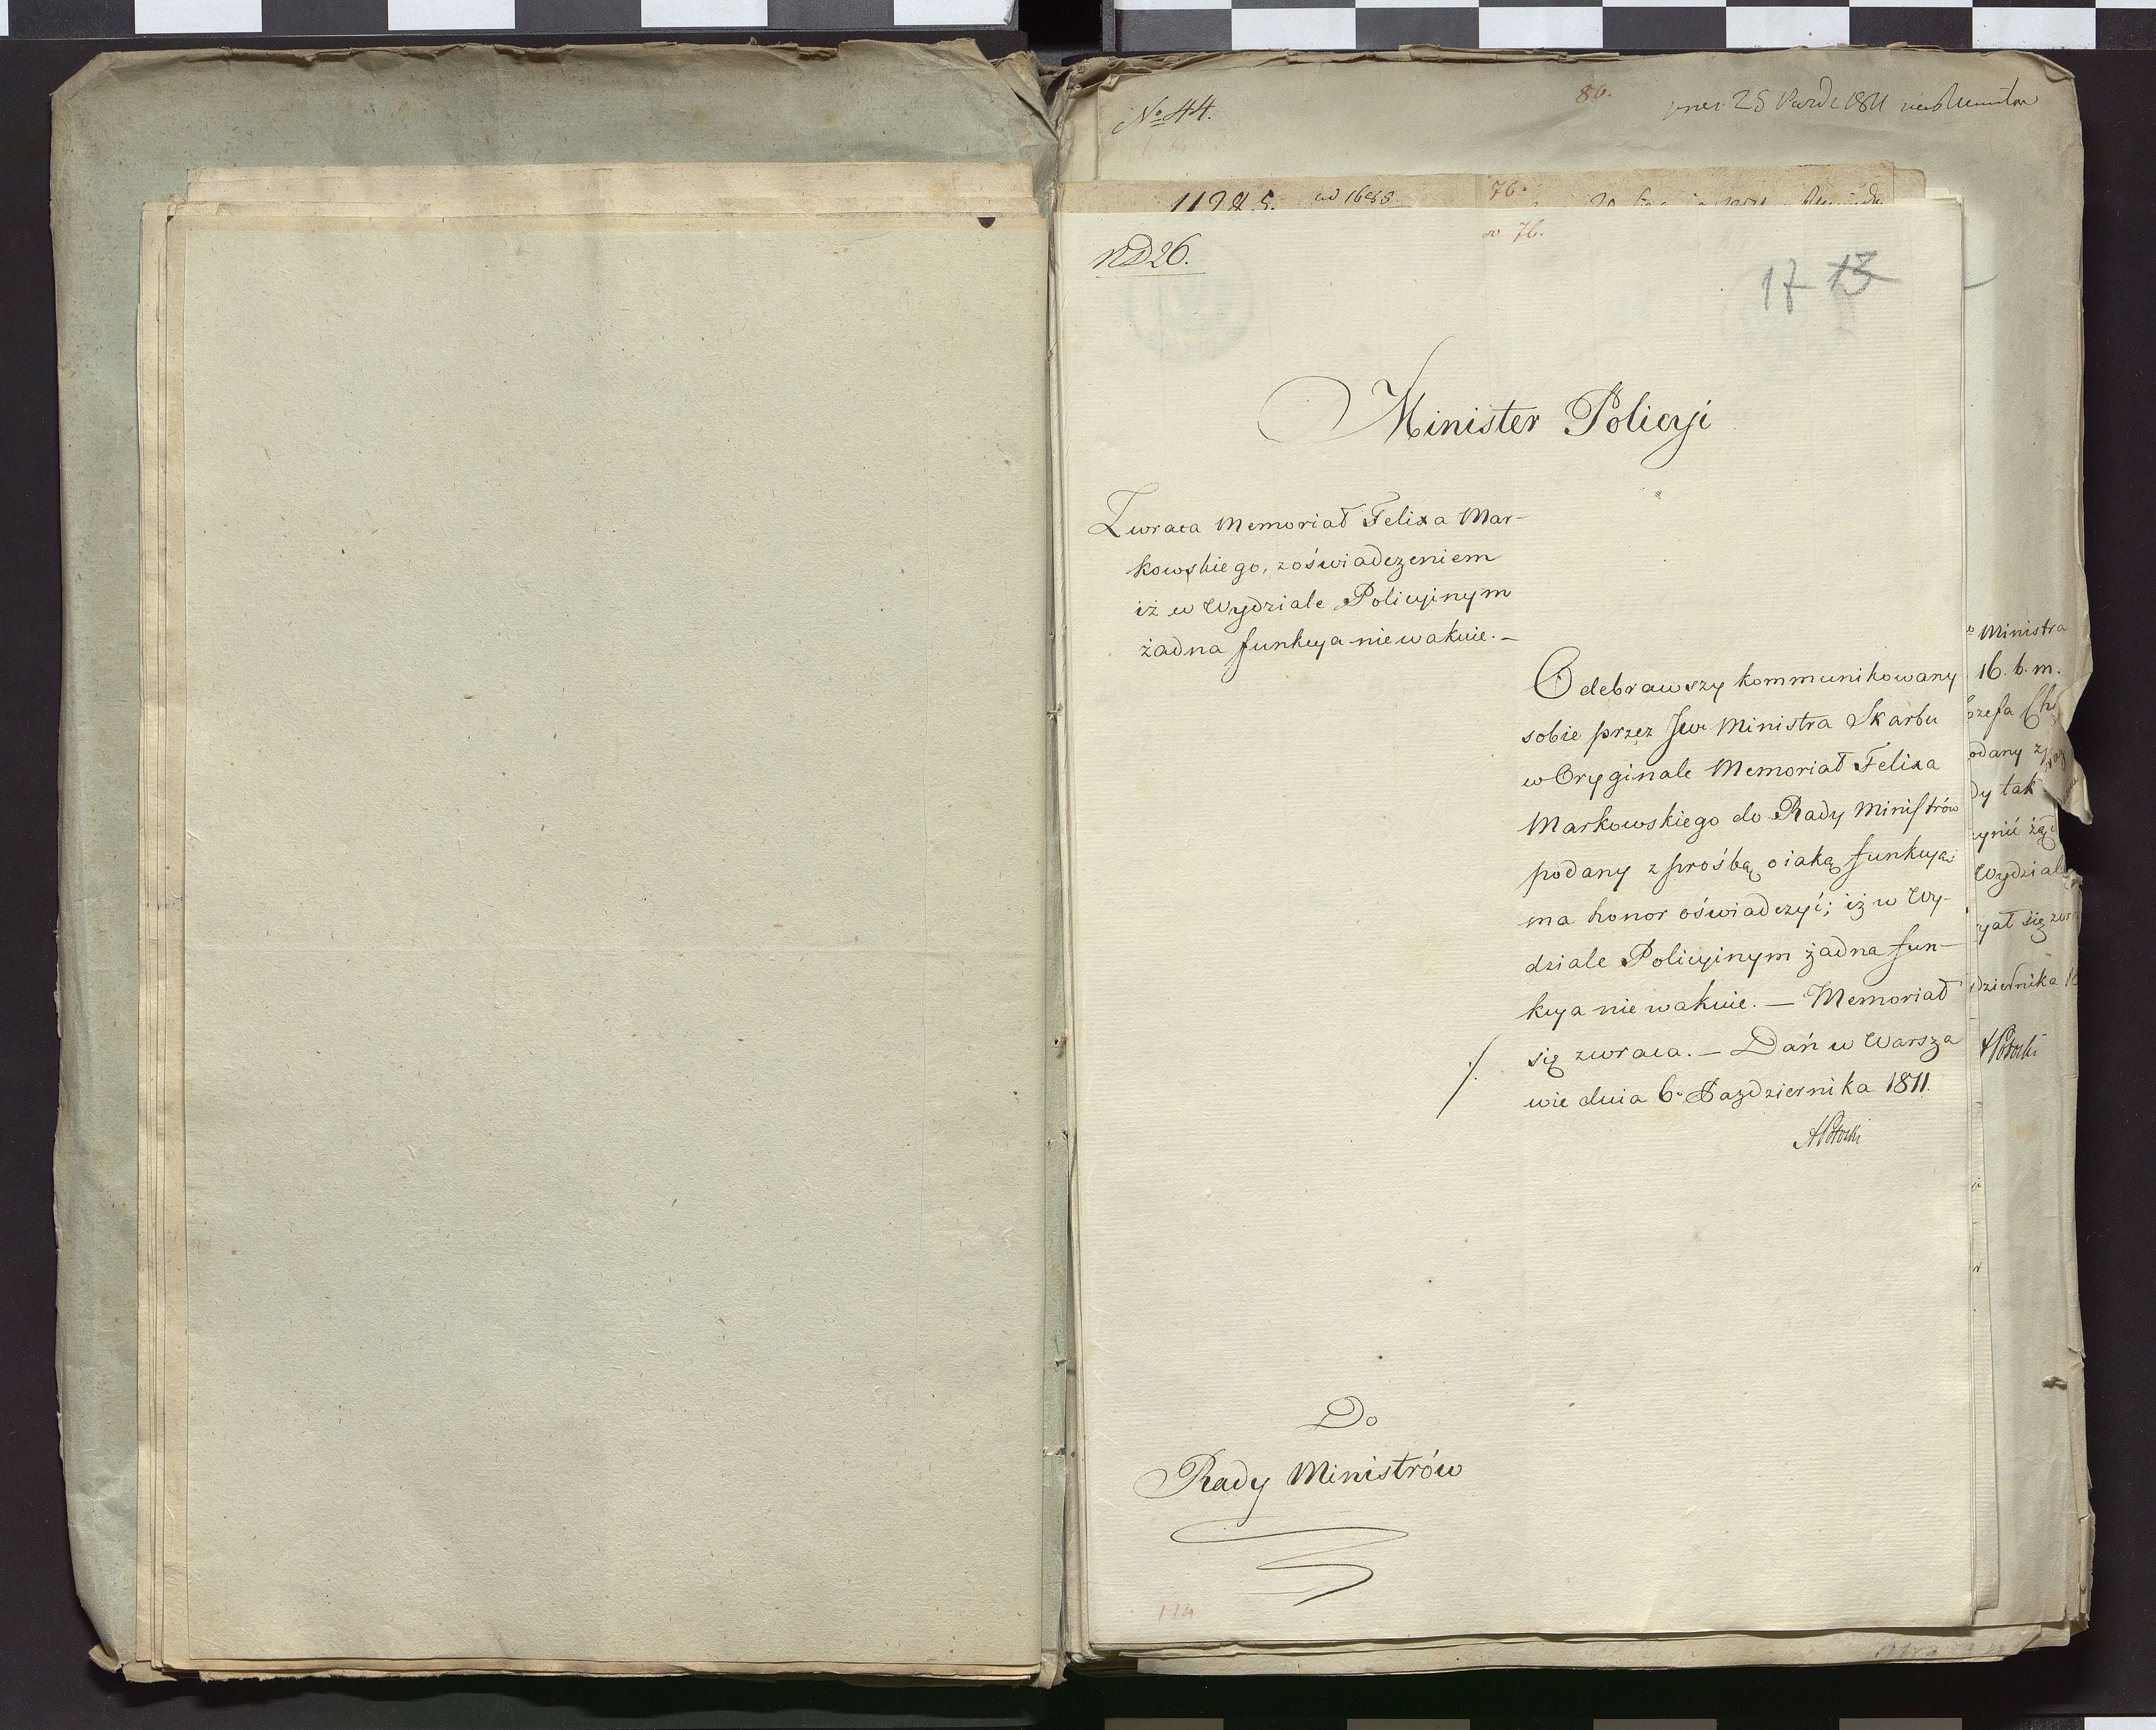 No 44.
86.
25 1811
11285. ad 1698.
76.
76.
ND 26.
17 13
Minister Policyi
Zwraca Memoriał Felixa Mar-
kowskiego, z oświadczeniem
iż w Wydziale Policyinym
żadna funkcya nie wakuie. —
Odebrawszy kommunikowany
sobie przez Jw. Ministra Skarbu
w Oryginale Memoriał Felixa
Markowskiego do Rady Ministrów
podany z prośbą o iaką funkcyą
ma honor oświadczyć; iż w Wy-
dziale Policyinym żadna fun-
kcya nie wakuie. — Memoriał
się zwraca. — Dań w Warsza
wie dnia 6. Października 1811.
APotocki
Do
Rady Ministrów
114
Ministra
16. b. m.
zefa Ch
odany z
dy tak
ynić żąd
Wydziale
yał się zwr
dziernika 1
APotocki